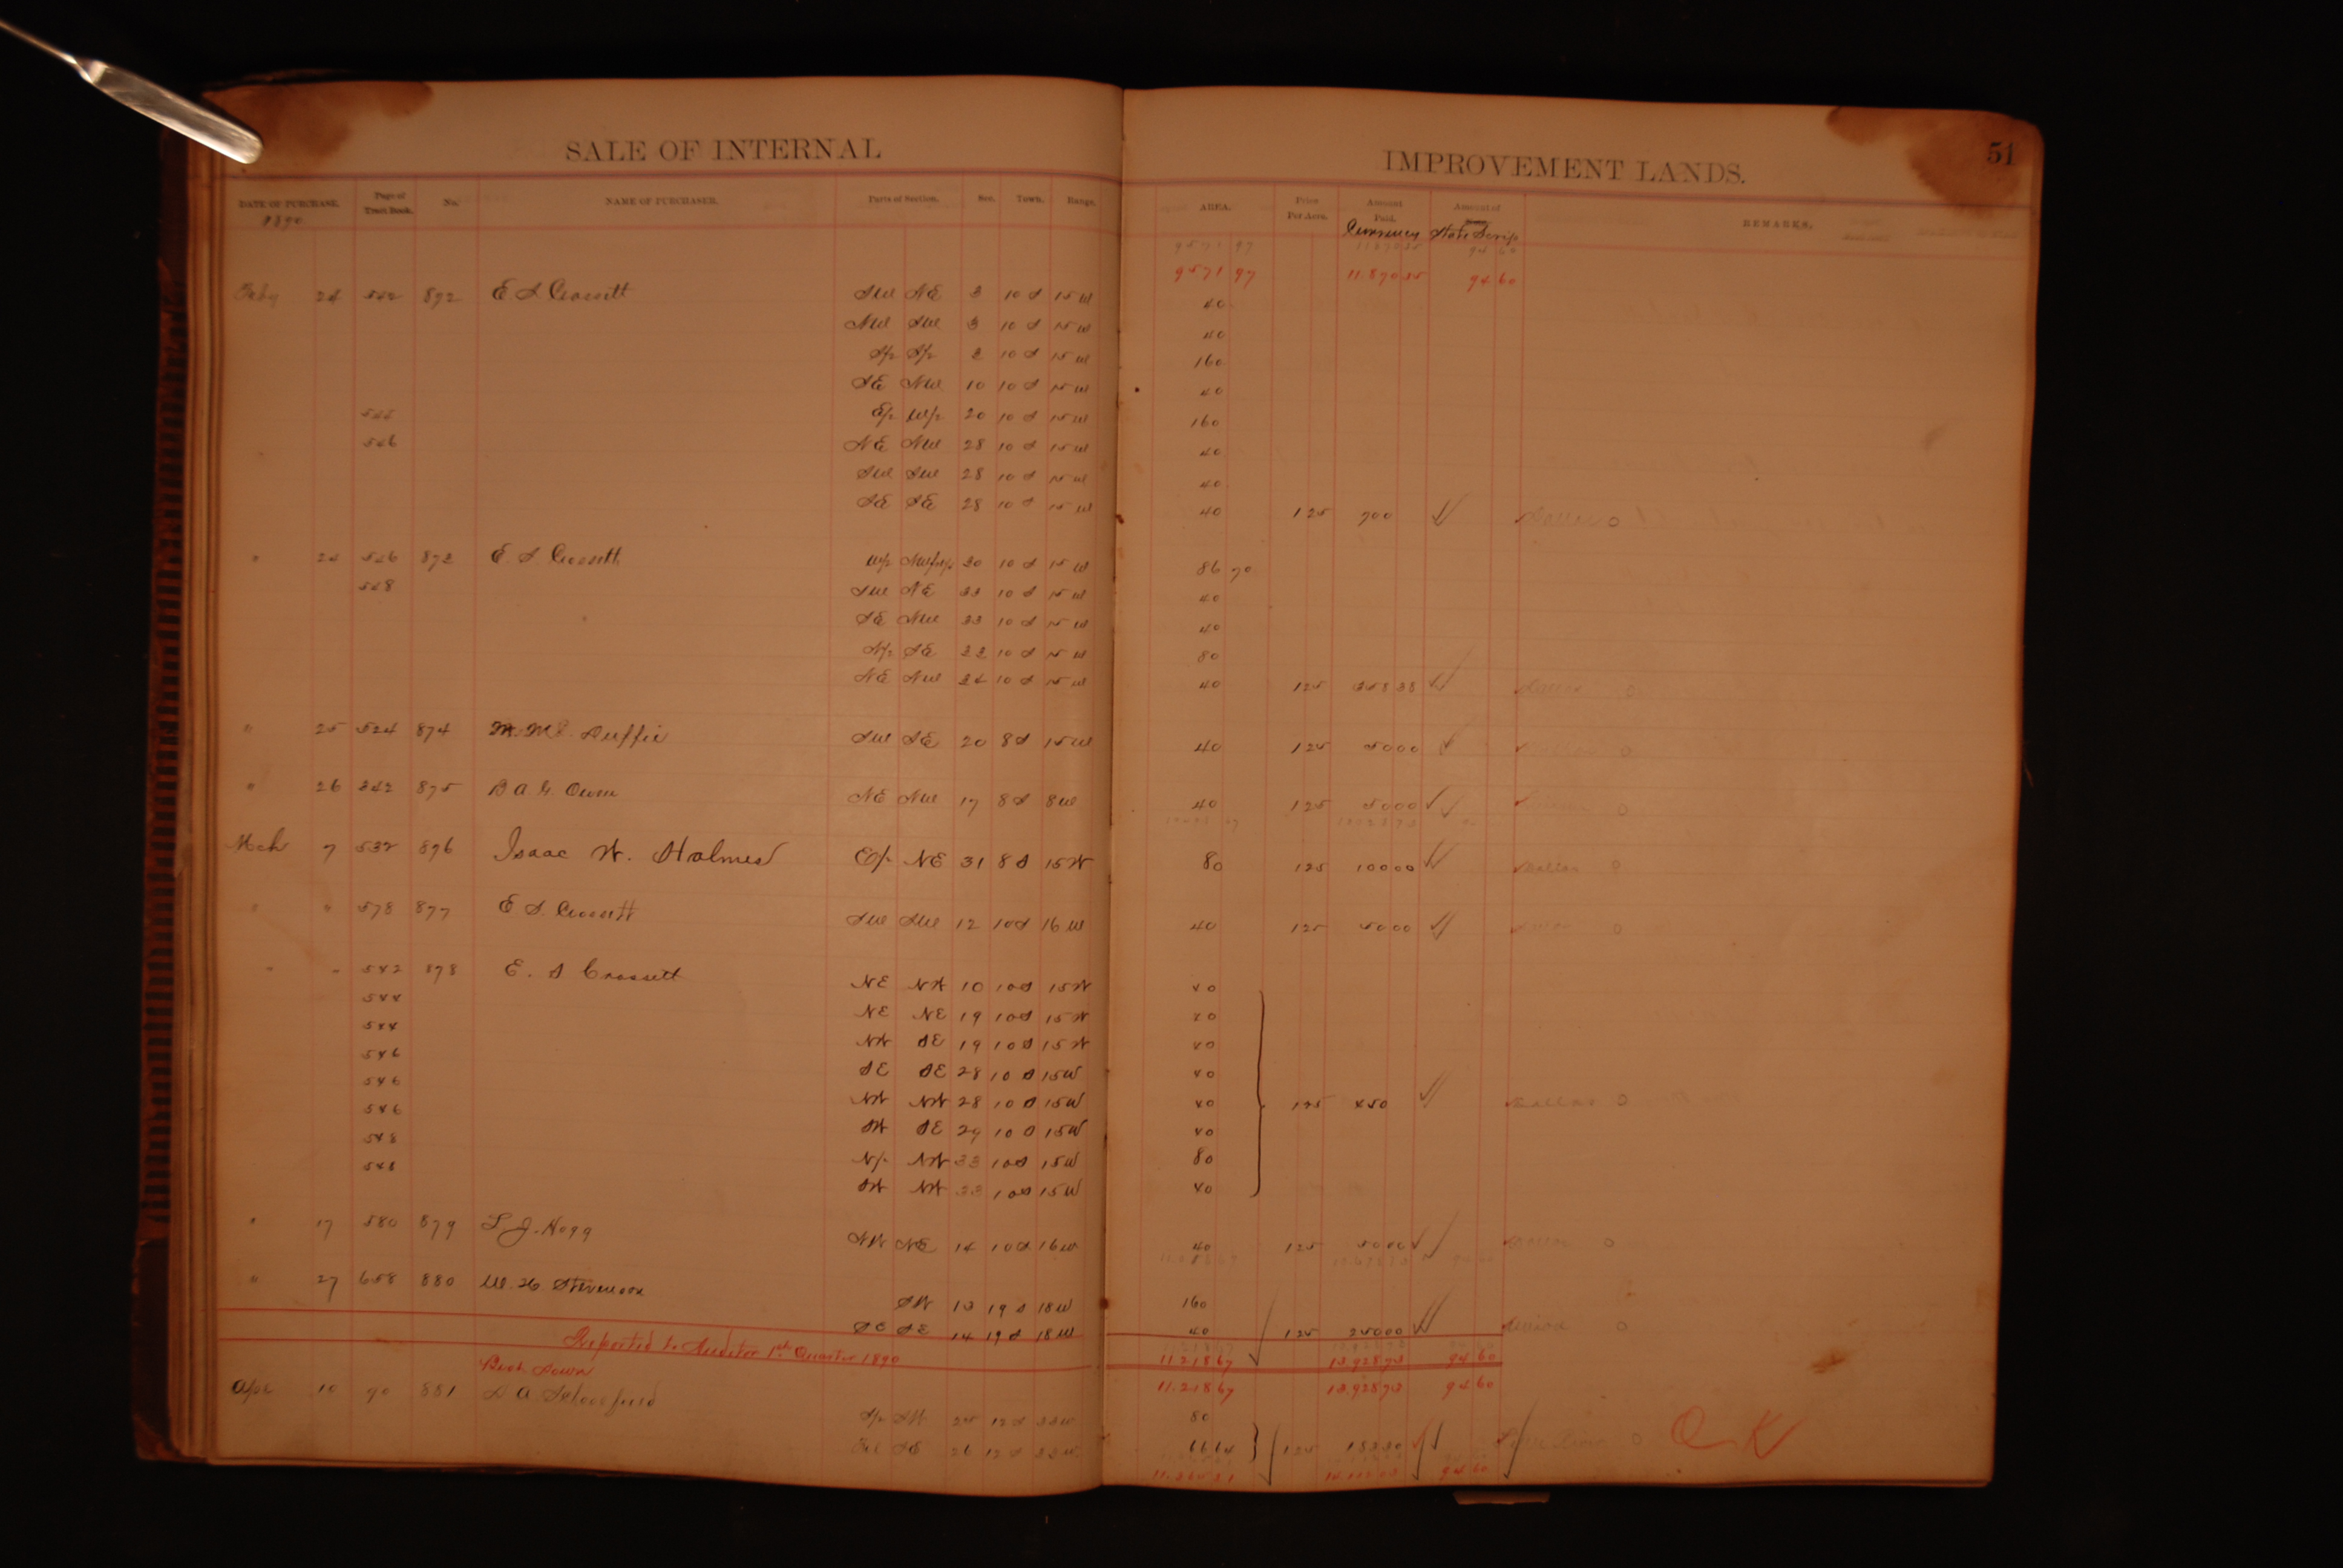 SALE OF INTERNAL IMPROVEMENT LANDS. 51
DATE OF PURCHASE. Page of Tract Book. No. NAME OF PURCHASER. Parts of Section. Sec. Town. Range. AREA. Price Per Acre. Amount Paid. Amount of REMARKS.
1890 Currency State Scrip
9571 97 11.870 35 94 60
Feby 24 542 872 E S Crossett SW NE 3 10 S 15 W 40
NW SW 3 10 S 15 W 40
S/2 S/2 3 10 S 15 W 160
SE NW 10 10 S 15 W 40
544 E/2 W/2 20 10 S 15 W 160
546 NE NW 28 10 S 15 W 40
SW SW 28 10 S 15 W 40
SE SE 28 10 S 15 W 40 125 700 Dallas O
" 24 546 873 E. S Crossett W/2 30 10 S 15 W 86 70
548 SW NE 33 10 S 15 W 40
SE NW 33 10 S 15 W 40
N/2 SE 33 10 S 15 W 80
NE NW 34 10 S 15 W 40 125 358 38 Dallas O
" 25 524 874 Duffie SW SE 20 8 S 15 W 40 125 50 00 O
" 26 342 875 B A G. Owen NE NW 17 8 S 8 W 40 125 50 00 O
Mch 7 532 876 Isaac W. Holmes E/2 NE 31 8 S 15 W 80 125 100 00 Dallas O
" " 578 877 E S. Crossett SW SW 12 10 S 16 W 40 125 50 00 O
" " 542 878 E. S Crossett NE NW 10 10 S 15 W 40
544 NE NE 19 10 S 15 W 40
544 NW SE 19 10 S 15 W 40
546 SE SE 28 10 S 15 W 40
546 NW NW 28 10 S 15 W 40 125 450 Dallas O
546 SW SE 29 10 S 15 W 40
548 N/2 NW 33 10 S 15 W 80
548 SW NW 33 10 S 15 W 40
" 17 580 879 L J. Hogg NW NE 14 10 S 16 W 40 125 50 00 Dallas O
" 27 658 880 W. H Stevenson SW 13 19 S 18 W 160
SE SE 14 19 S 18 W 40 125 250 00 Union O
Reported to Auditor 1st Quarter 1890 11.218 67 13.928 73 94 60
Brot Down 11.218 67 13.928 73 94 60
Apr 10 90 881 S/2 SW 25 12 S 33 W 80
SE 26 12 S 33 W 66 64 125 183 30 Little River O O K
94 60